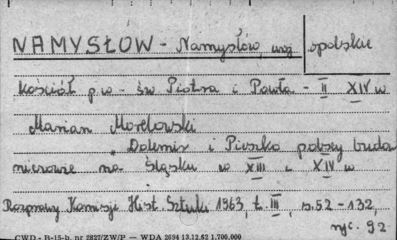 NAMYSŁÓW - Namysłów, woj opolskie
Kościół p.w - św Piotra i Pawła - II XIV w
Marian Morelowski
"Dolemir i Pieszko polscy budow
niczowie na Śląsku w XIII i XIV w
Rozprawy Komisji Hist. Sztuki 1963, t. III, s.52-132,
ryc. 92
CWD - B-15-b, nr 2827/ZW/P — WDA 2694 13.12.62 1.700.000